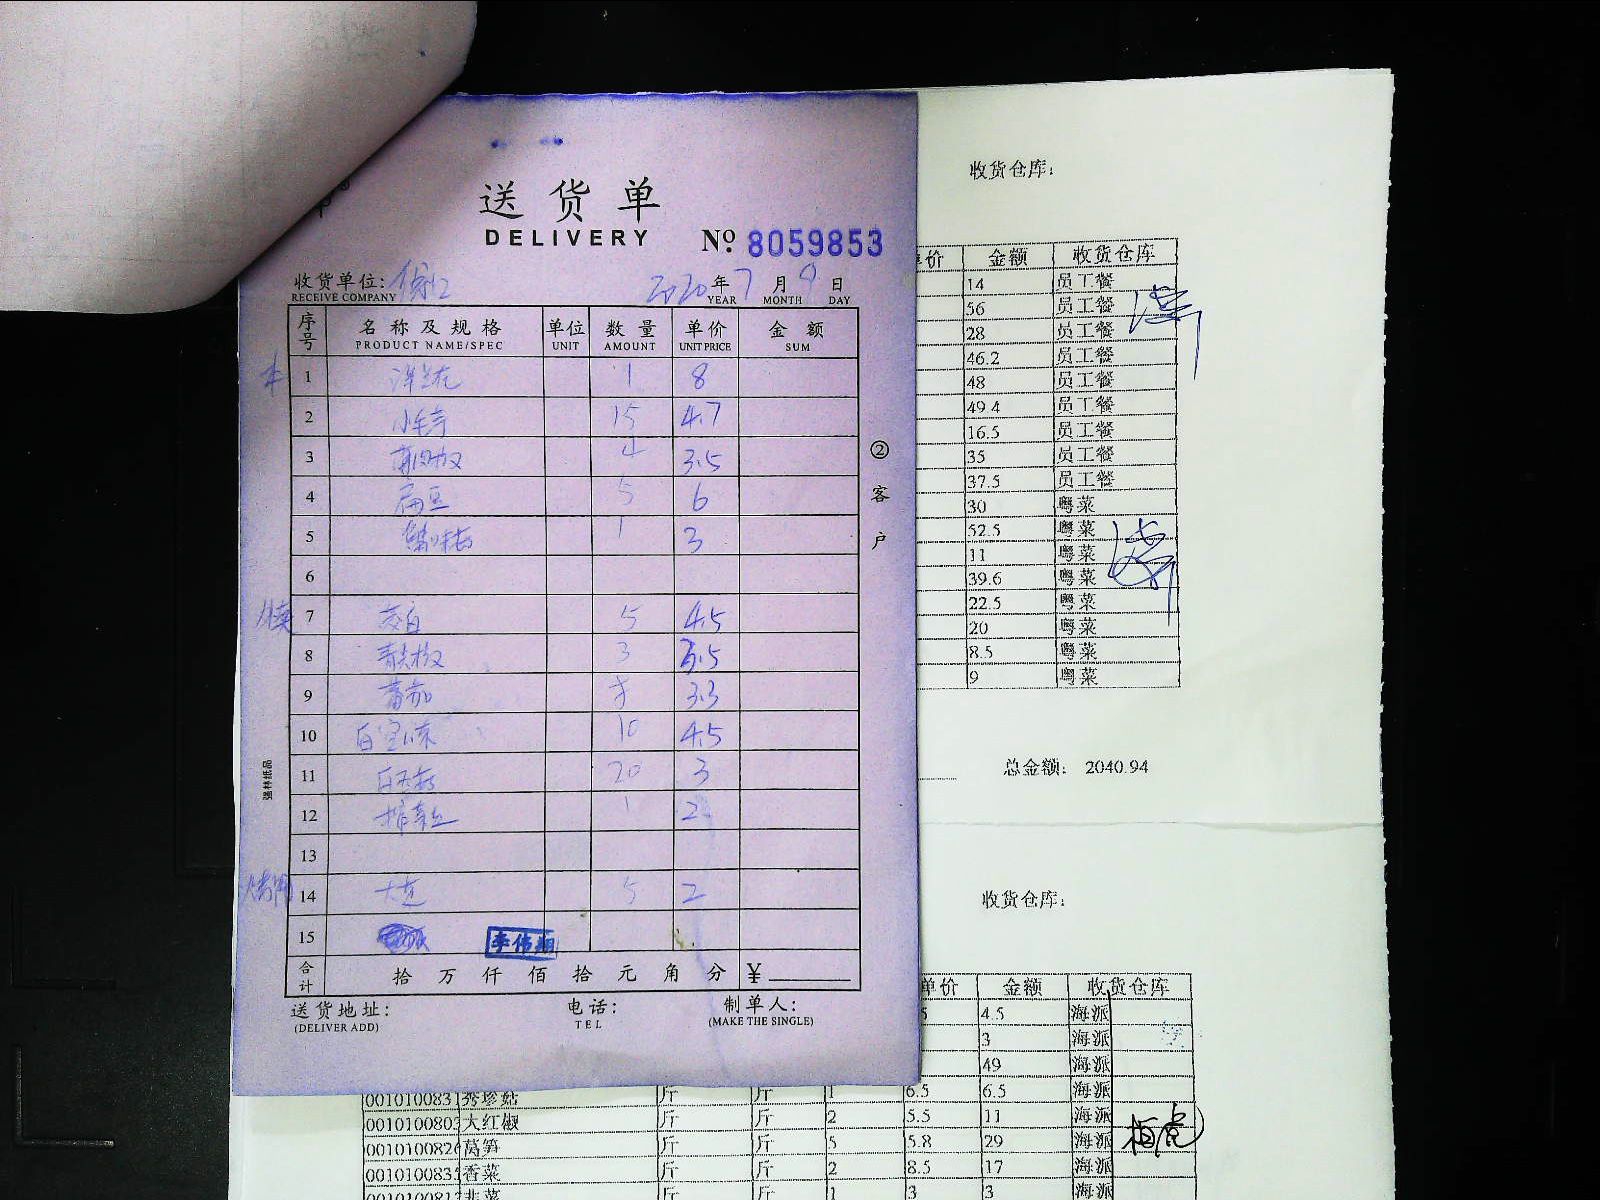 送货单
DELIVERY
№ 8059853
收货单位:
RECEIVE COMPANY
2020年 7 月 日
YEAR MONTH DAY
序号 名称及规格 单位 数量 单价 金额
PRODUCT NAME/SPEC UNIT AMOUNT UNIT PRICE SUM
1 洋兰花 1 8
2 15 4.7
3 4 3.5
4 扁豆 5 6
5 1 3
6
7 茭白 5 4.5
8 青尖椒 3 3.5
9 蕃茄 3.3
10 10 4.5
11 20 3
12 1 2
13
14 大 5 2
15 李伟翔
合计 拾万仟佰拾元角分 ¥
送货地址: 电话: 制单人:
(DELIVER ADD) TEL (MAKE THE SINGLE)
②客户
强林纸品
收货仓库:
价 金额 收货仓库
14 员工餐
56 员工餐
28 员工餐
46.2 员工餐
48 员工餐
49.4 员工餐
16.5 员工餐
35 员工餐
37.5 员工餐
30 粤菜
52.5 粤菜
11 粤菜
39.6 粤菜
22.5 粤菜
20 粤菜
8.5 粤菜
9 粤菜
总金额: 2040.94
收货仓库:
单价 金额 收货仓库
5 4.5 海派
3 海派
49 海派
001010083 秀珍菇 斤 斤 1 6.5 6.5 海派
001010080 大红椒 斤 斤 2 5.5 11 海派
001010082 莴笋 斤 斤 5 5.8 29 海派
001010083 香菜 斤 斤 2 8.5 17 海派
001010081 韭菜 斤 斤 1 3 3 海派